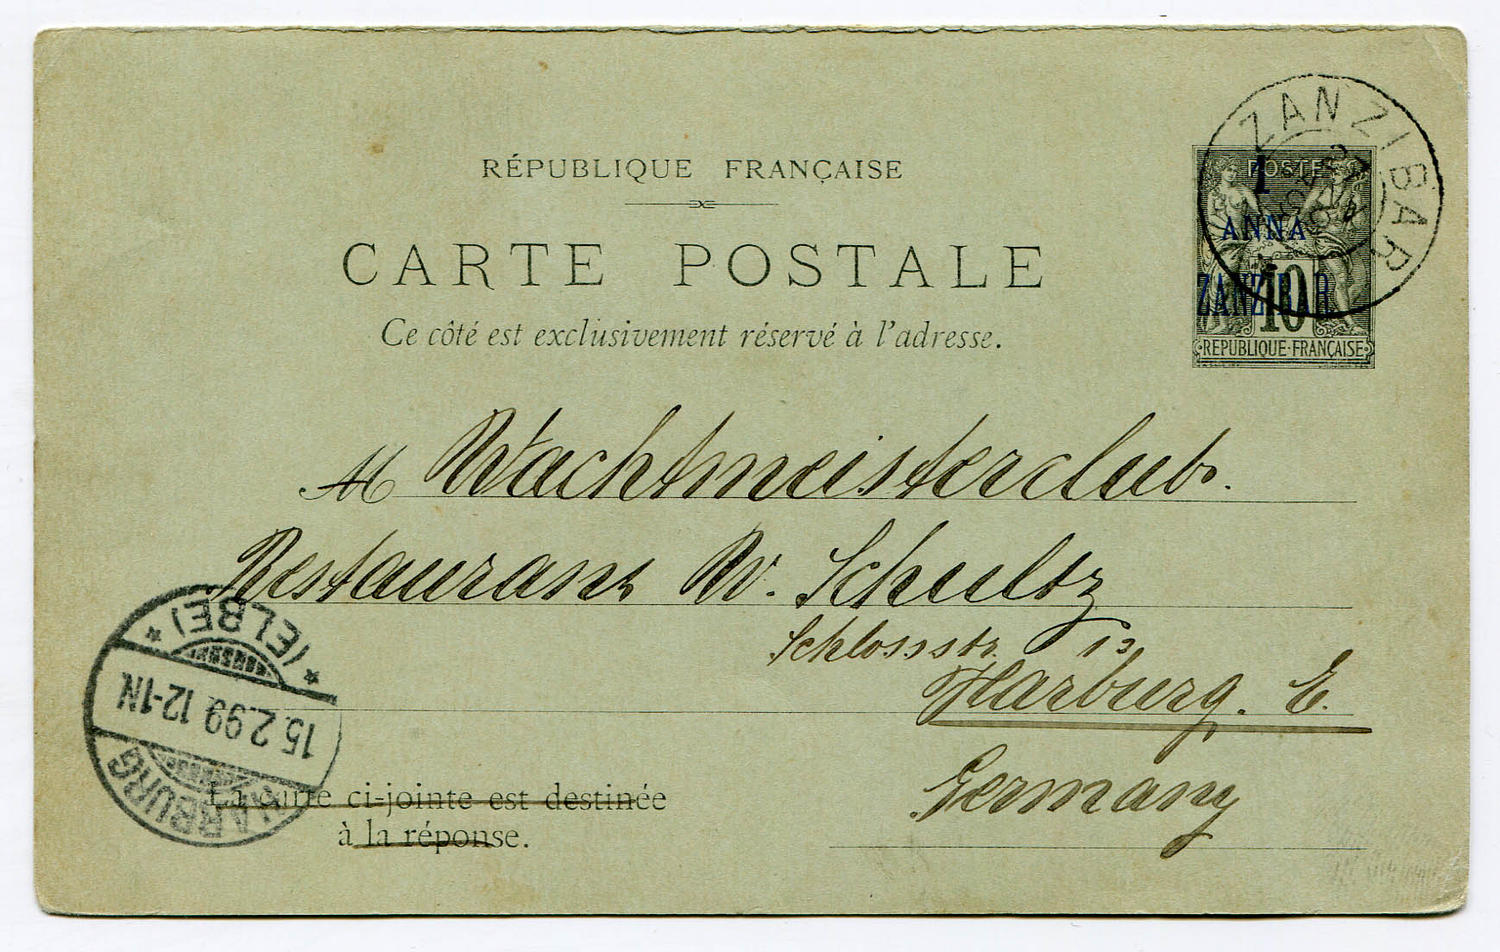 RÉPUBLIQUE FRANÇAISE
CARTE POSTALE
Ce côté est exclusivement réservé à l'adresse.
ZANZIBAR
POSTES
1
ANNA
ZANZIBAR
10
REPUBLIQUE·FRANÇAISE
M Wachtmeisterclub.
Restaurant W. Schultz
Schlossstr. 13
Harburg. E.
Germany
HARBURG
15.2.99 12-1N
* (ELBE) *
La carte ci-jointe est destinée
à la réponse.